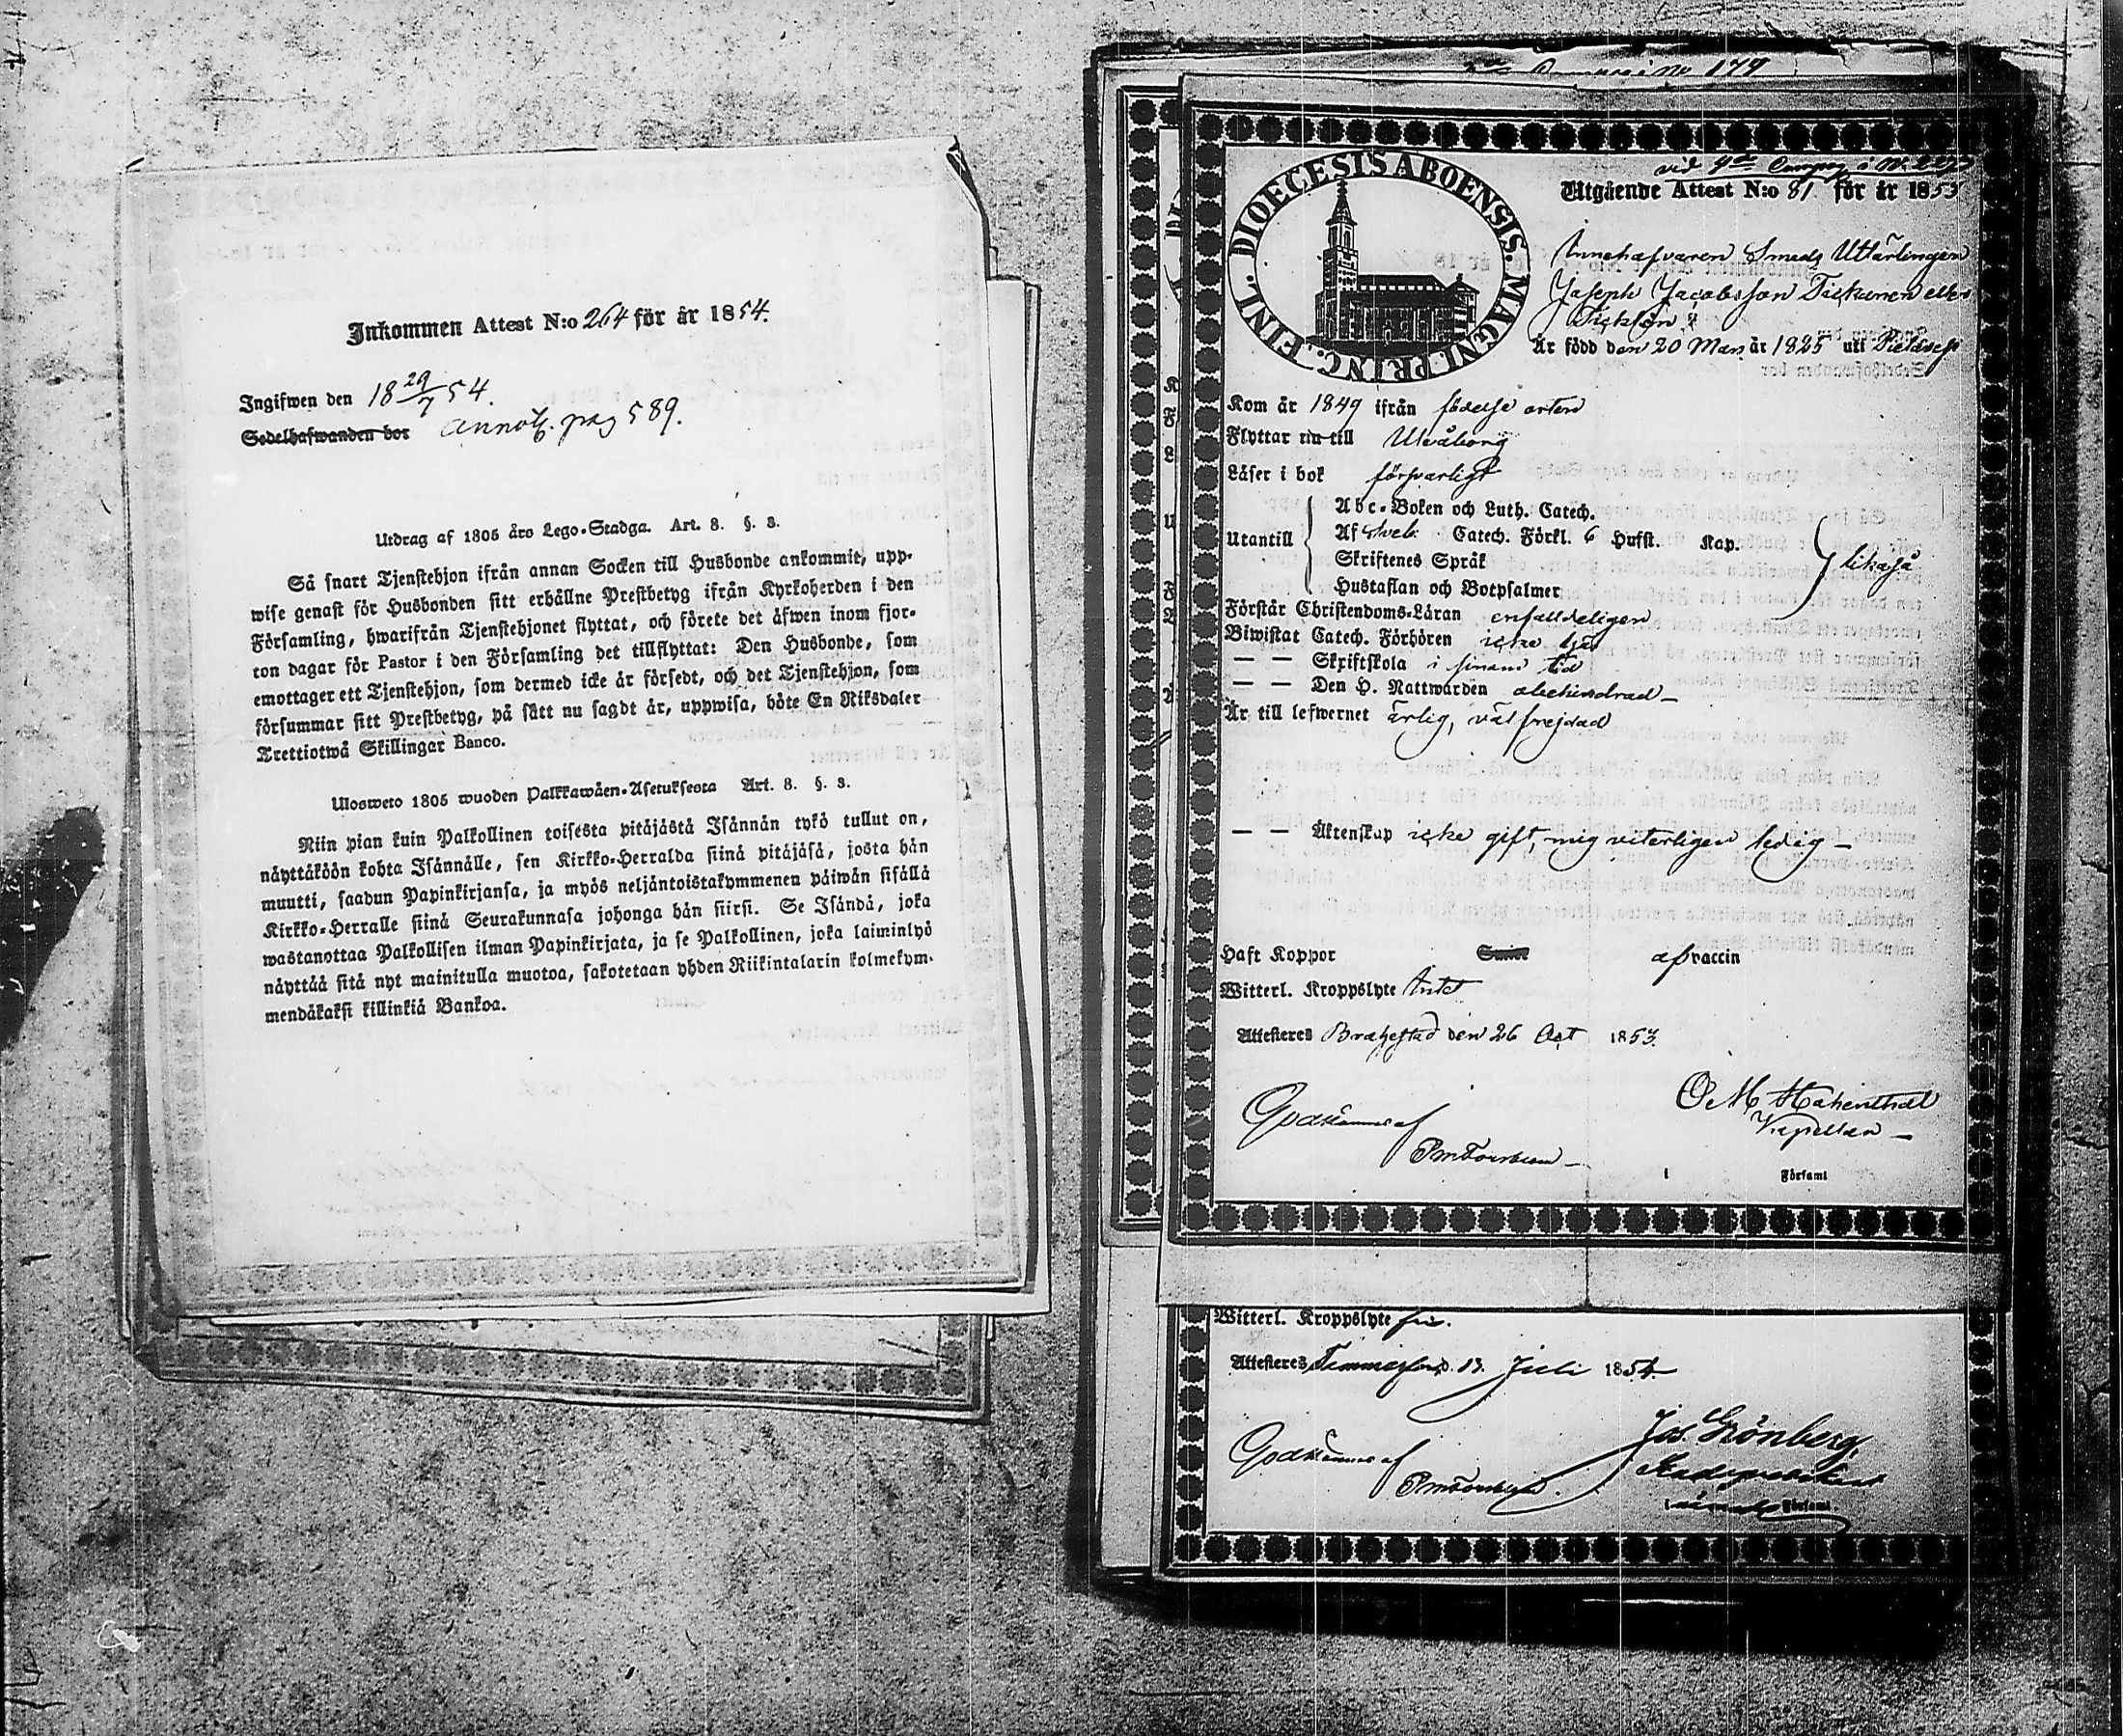 Inkommen Attest N:o 264 för år 1854.
Ingifwen den 18 29/7 54.
Sedelhafwanden bor annot. pag 589.
Utdrag af 1805 års Lego-Stadga. Art. 8. §. 3.
Så snart Tjenstehjon ifrån annan Socken till Husbonde ankommit, upp-
wise genast för Husbonden sitt erhållne Prestbetyg ifrån Kyrkoherden i den
Församling, hwarifrån Tjenstehjonet flyttat, och förete det äfwen inom fjor-
ton dagar för Pastor i den Församling det tillflyttat: Den Husbonde, som
emottager ett Tjenstehjon, som dermed icke är försedt, och det Tjenstehjon, som
försummar sitt Prestbetyg, på sätt nu sagdt är, uppwisa, böte En Riksdaler
Trettiotwå Skillingar Banco.
Ulosweto 1805 wuoden Palkkawäen-Asetuksesta Art. 8. §. 3.
Niin pian kuin Palkollinen toisesta pitäjästä Isännän tykö tullut on,
näyttäköön kohta Isännälle, sen Kirkko-Herralda siinä pitäjäsä, josta hän
muutti, saadun Papinkirjansa, ja myös neljäntoistakymmenen päiwän sisällä
Kirkko-Herralle siinä Seurakunnasa johonga hän siirsi. Se Isändä, joka
wastanottaa Palkollisen ilman Papinkirjata, ja se Palkollinen, joka laiminlyö
näyttää sitä nyt mainitulla muotoa, sakotetaan yhden Riikintalarin kolmekym-
mendäkaksi killinkiä Bankoa.
179
DIOECESIS ABOENSIS. MAGNI. PRINC. FINL.
Utgående Attest N:o 81 för år 1853
Innehafvaren Smeds Utlärlingen
Joseph Jacobsson Tickanen eller
Ticklén
Är född den 20 Mars år 1825 uti
Kom år 1849 ifrån födelse orten
Flyttar nu till Uleåborg
Läser i bok försvarligt
Utantill
Abc-Boken och Luth. Catech.
Af Sveb. Catech. Förkl. 6 Hufst. Kap.
Skriftenes Språk
Hustaflan och Botpsalmer
likaså
Förstår Christendoms-Läran enfalldeligen
Biwistat Catech. Förhören icke här
— — Skriftskola i sinom tid
— — Den H. Nattwarden obehindrad —
Är till lefwernet ärlig, väl frejdad
— — Äktenskap icke gift, mig veterligen ledig —
Haft Koppor Smitt af vaccin
Witterl. Kroppslyte Intet
Attesteres Brahestad den 26 Oct 1853.
Godkännes af
Kapellan —
i Församl
Witterl. Kroppslyte fri.
Attesteres d. 13. Juli 1854
Godkännes af
Jos. Grönberg,
Församl.